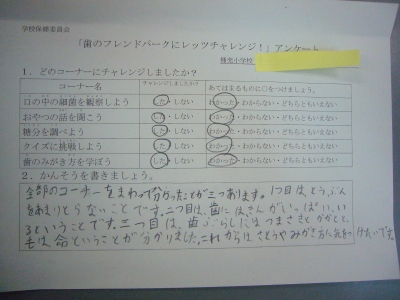 学校保健委員会
「歯のフレンドパークにレッツチャレンジ！」アンケート
1．どのコーナーにチャレンジしましたか？
コーナー名 チャレンジしましたか？ あてはまるものに○をつけましょう。
口の中の細菌を観察しよう した・しない わかった・わからない・どちらともいえない
おやつの話を聞こう した・しない わかった・わからない・どちらともいえない
糖分を調べよう した・しない わかった・わからない・どちらともいえない
クイズに挑戦しよう した・しない わかった・わからない・どちらともいえない
歯のみがき方を学ぼう した・しない わかった・わからない・どちらともいえない
2．かんそうを書きましょう。
全部のコーナーをまわって分かったことが三つあります。1つ目は、とうぶん
をあまりとらないことです。二つ目は、歯にはきんがいっぱいい
るということです。三つ目は、歯ぶらしにはつまさきとかかとと、
毛は、命ということが分かりました。これからはさとうやみがき方に気をつけたいです。